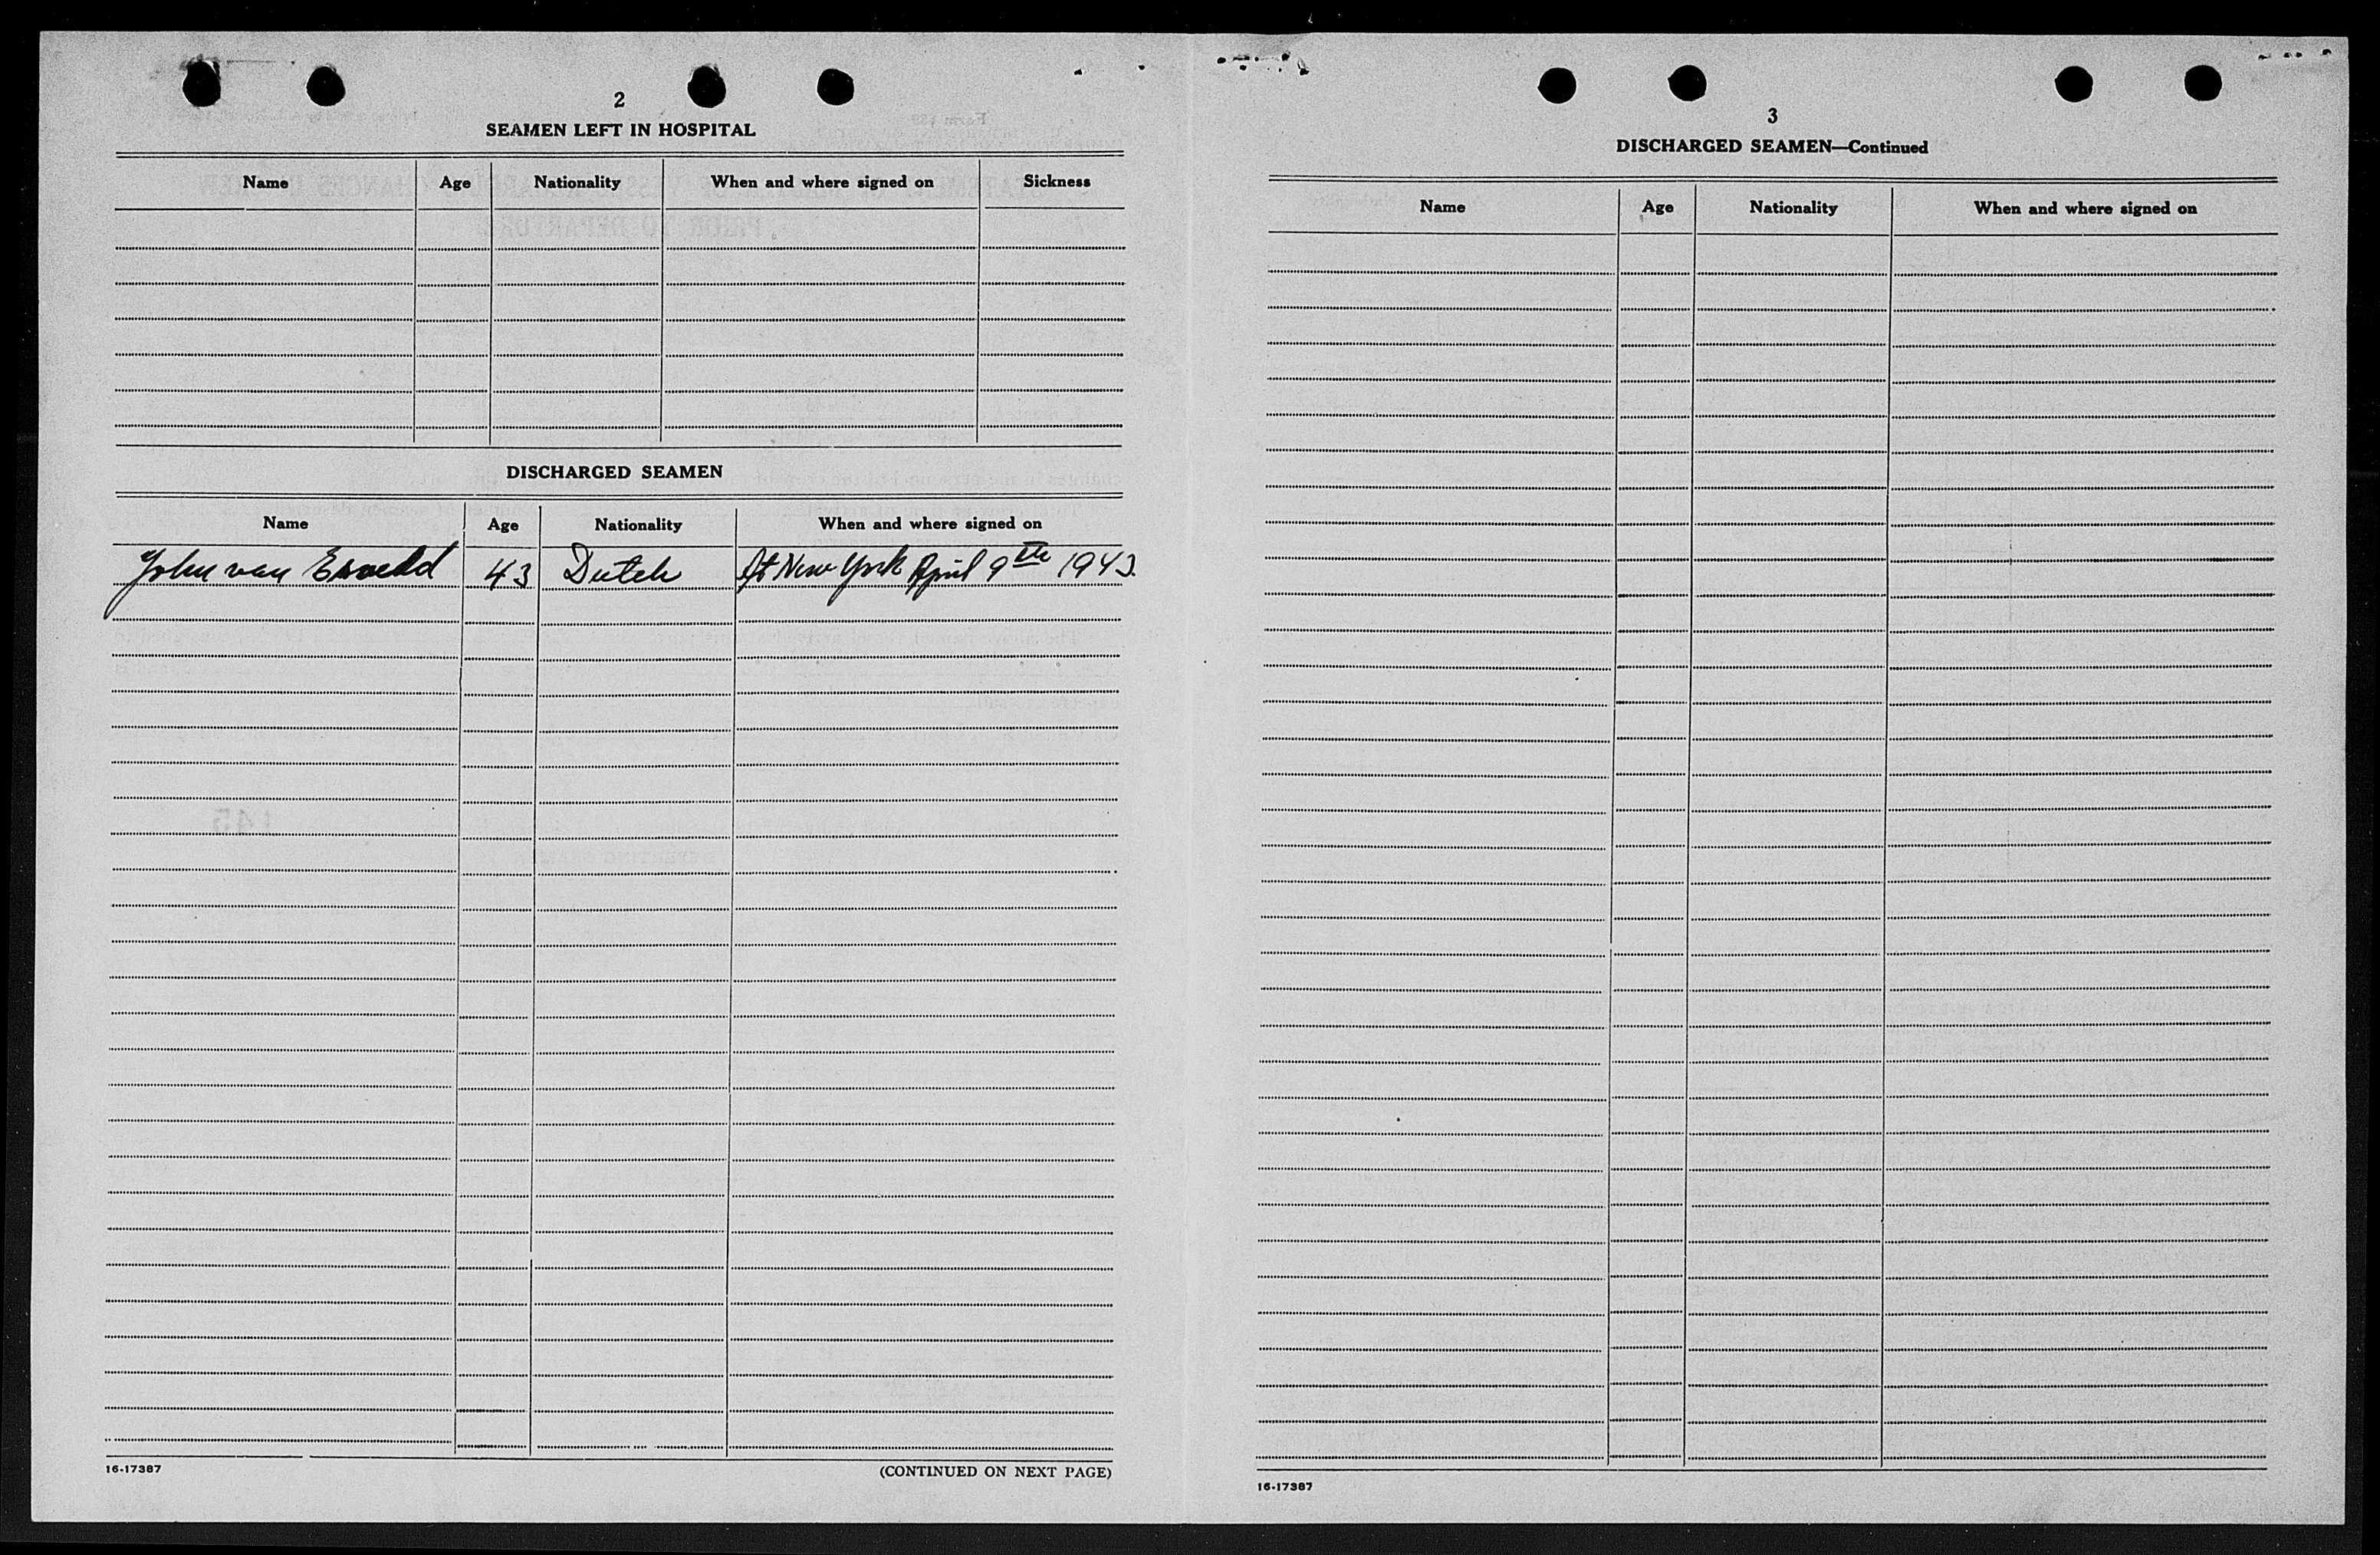 2
SEAMEN LEFT IN HOSPITAL
Name Age Nationality When and where signed on Sickness
DISCHARGED SEAMEN
Name Age Nationality When and where signed on
John van Esveld 43 Dutch At New York April 9th 1943.
16-17387 (CONTINUED ON NEXT PAGE)
3
DISCHARGED SEAMEN—Continued
Name Age Nationality When and where signed on
16-17387